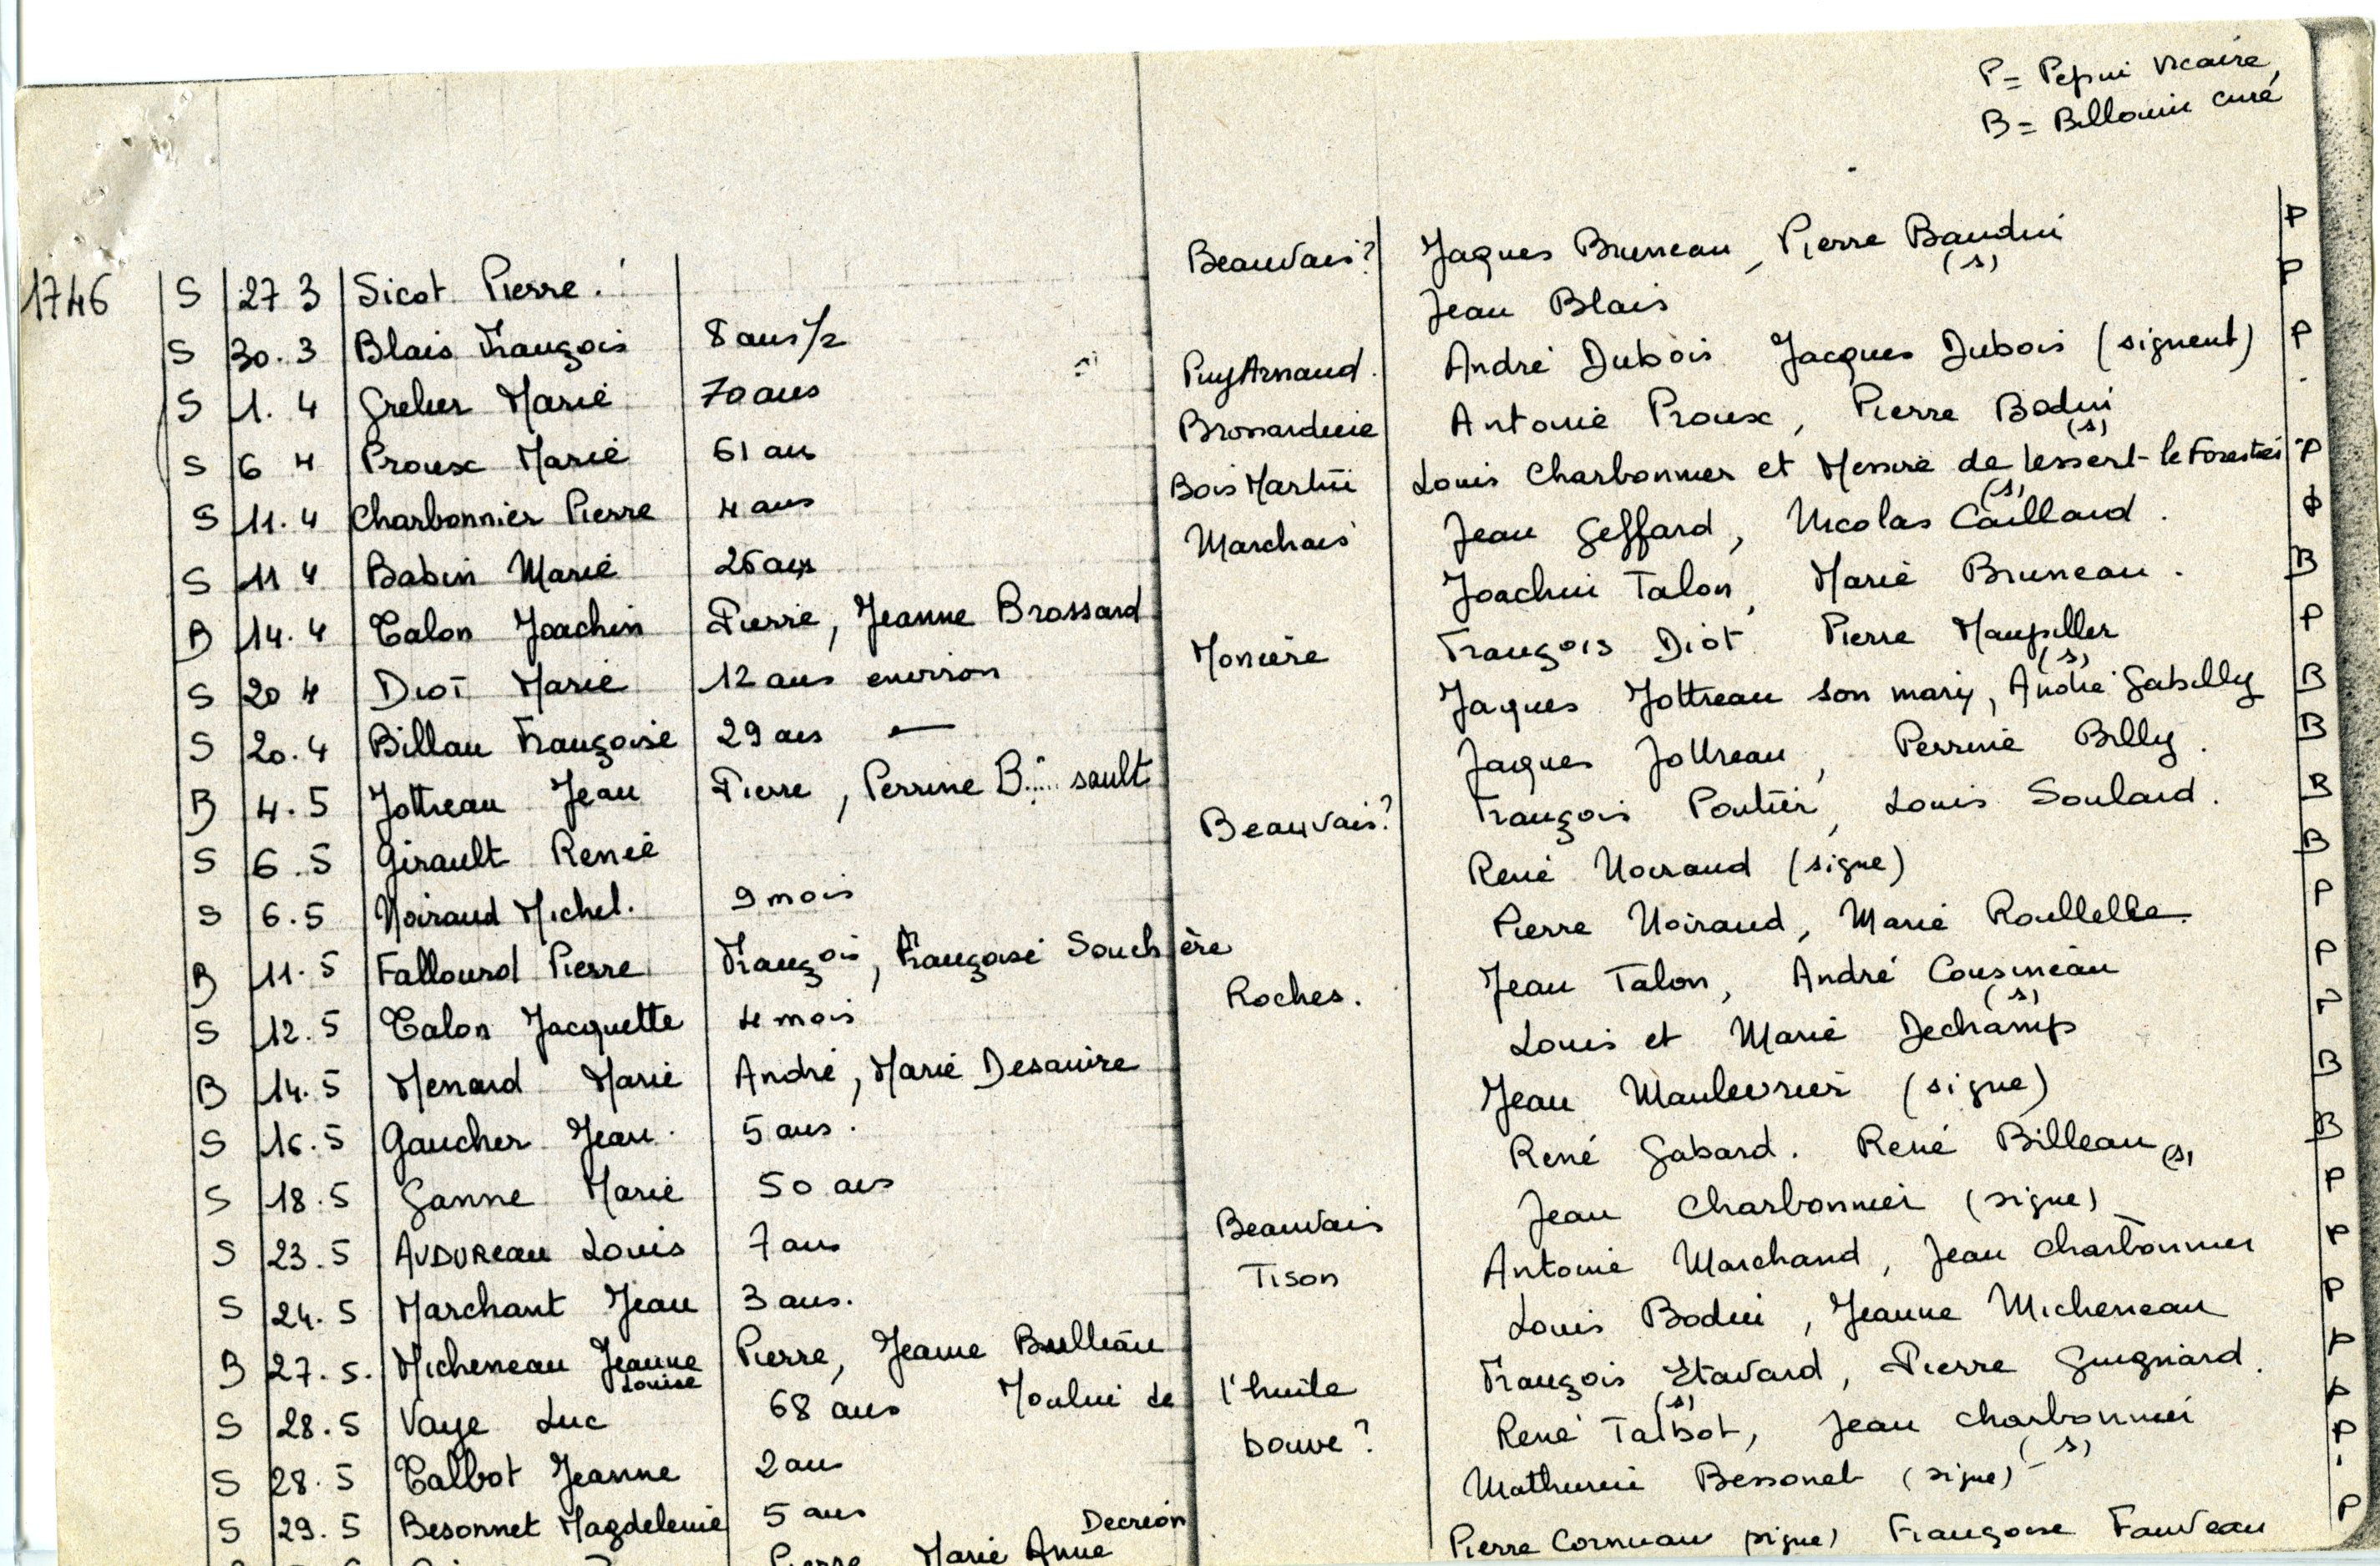 P = Pepin vicaire,
B = Billouin curé
1746 S 27 3 Sicot Pierre. Beauvais? Jaques Bruneau, Pierre Baudin (s) P
S 30.3 Blais François 8 ans 1/2 Jean Blais P
S 1.4 Grelier Marie 70 ans PuyArnaud. André Dubois Jacques Dubois (signent) P
S 6 4 Proux Marie 61 ans Brossardière Antoine Proux, Pierre Bodin (s)
S 11.4 Charbonnier Pierre 4 ans Bois Martin Louis Charbonnier et Messire de Lessert-le Forestier (s) P
S 11 4 Babin Marie 26 ans Marchais Jean Geffard, Nicolas Caillaud.
B 14.4 Talon Joachin Pierre, Jeanne Brossard Joachin Talon, Marie Bruneau. B
S 20 4 Diot Marie 12 ans environ Monière François Diot Pierre Maupiller (s) P
S 20.4 Billau Françoise 29 ans — Jaques Jottreau son mary, André Gabilly B
B 4.5 Jottreau Jean Pierre, Perrine B.... sault Jaques Jottreau, Perrine Billy. B
S 6.5 Girault Renée Beauvais? François Poutier, Louis Soulard. B
S 6.5 Noiraud Michel. 9 mois René Noiraud (signe) B
B 11.5 Fallourd Pierre François, Françoise Souchère Pierre Noiraud, Marie Roullelle P
S 12.5 Talon Jacquette 4 mois Roches. Jean Talon, André Cousineau (s) P
B 14.5 Menard Marie André, Marie Desaivre Louis et Marie Dechamp P
S 16.5 Gaucher Jean. 5 ans. Jean Maulevrier (signe) B
S 18.5 Ganne Marie 50 ans René Gabard. René Billeau (s) B
S 23.5 AUDUReau Louis 7 ans Beauvais Jean Charbonnier (signe) P
S 24.5 Marchant Jean 3 ans. Tison Antoine Marchand, Jean Charbonnier P
B 27.5. Micheneau Jeanne Louise Pierre, Jeanne Bulleau Louis Bodin, Jeanne Micheneau P
S 28.5 Vaye Luc 68 ans Moulin de l'huile François Etavard (s), Pierre Guigniard. P
S 28.5 Talbot Jeanne 2 ans bouve? René Talbot, Jean Charbonnier (s) P
S 29.5 Besonnet Magdeleine 5 ans Mathurin Bessonet (signe) P
Pierre Marie Anne Decréon Pierre Cornuau (signe) Françoise Fauveau P